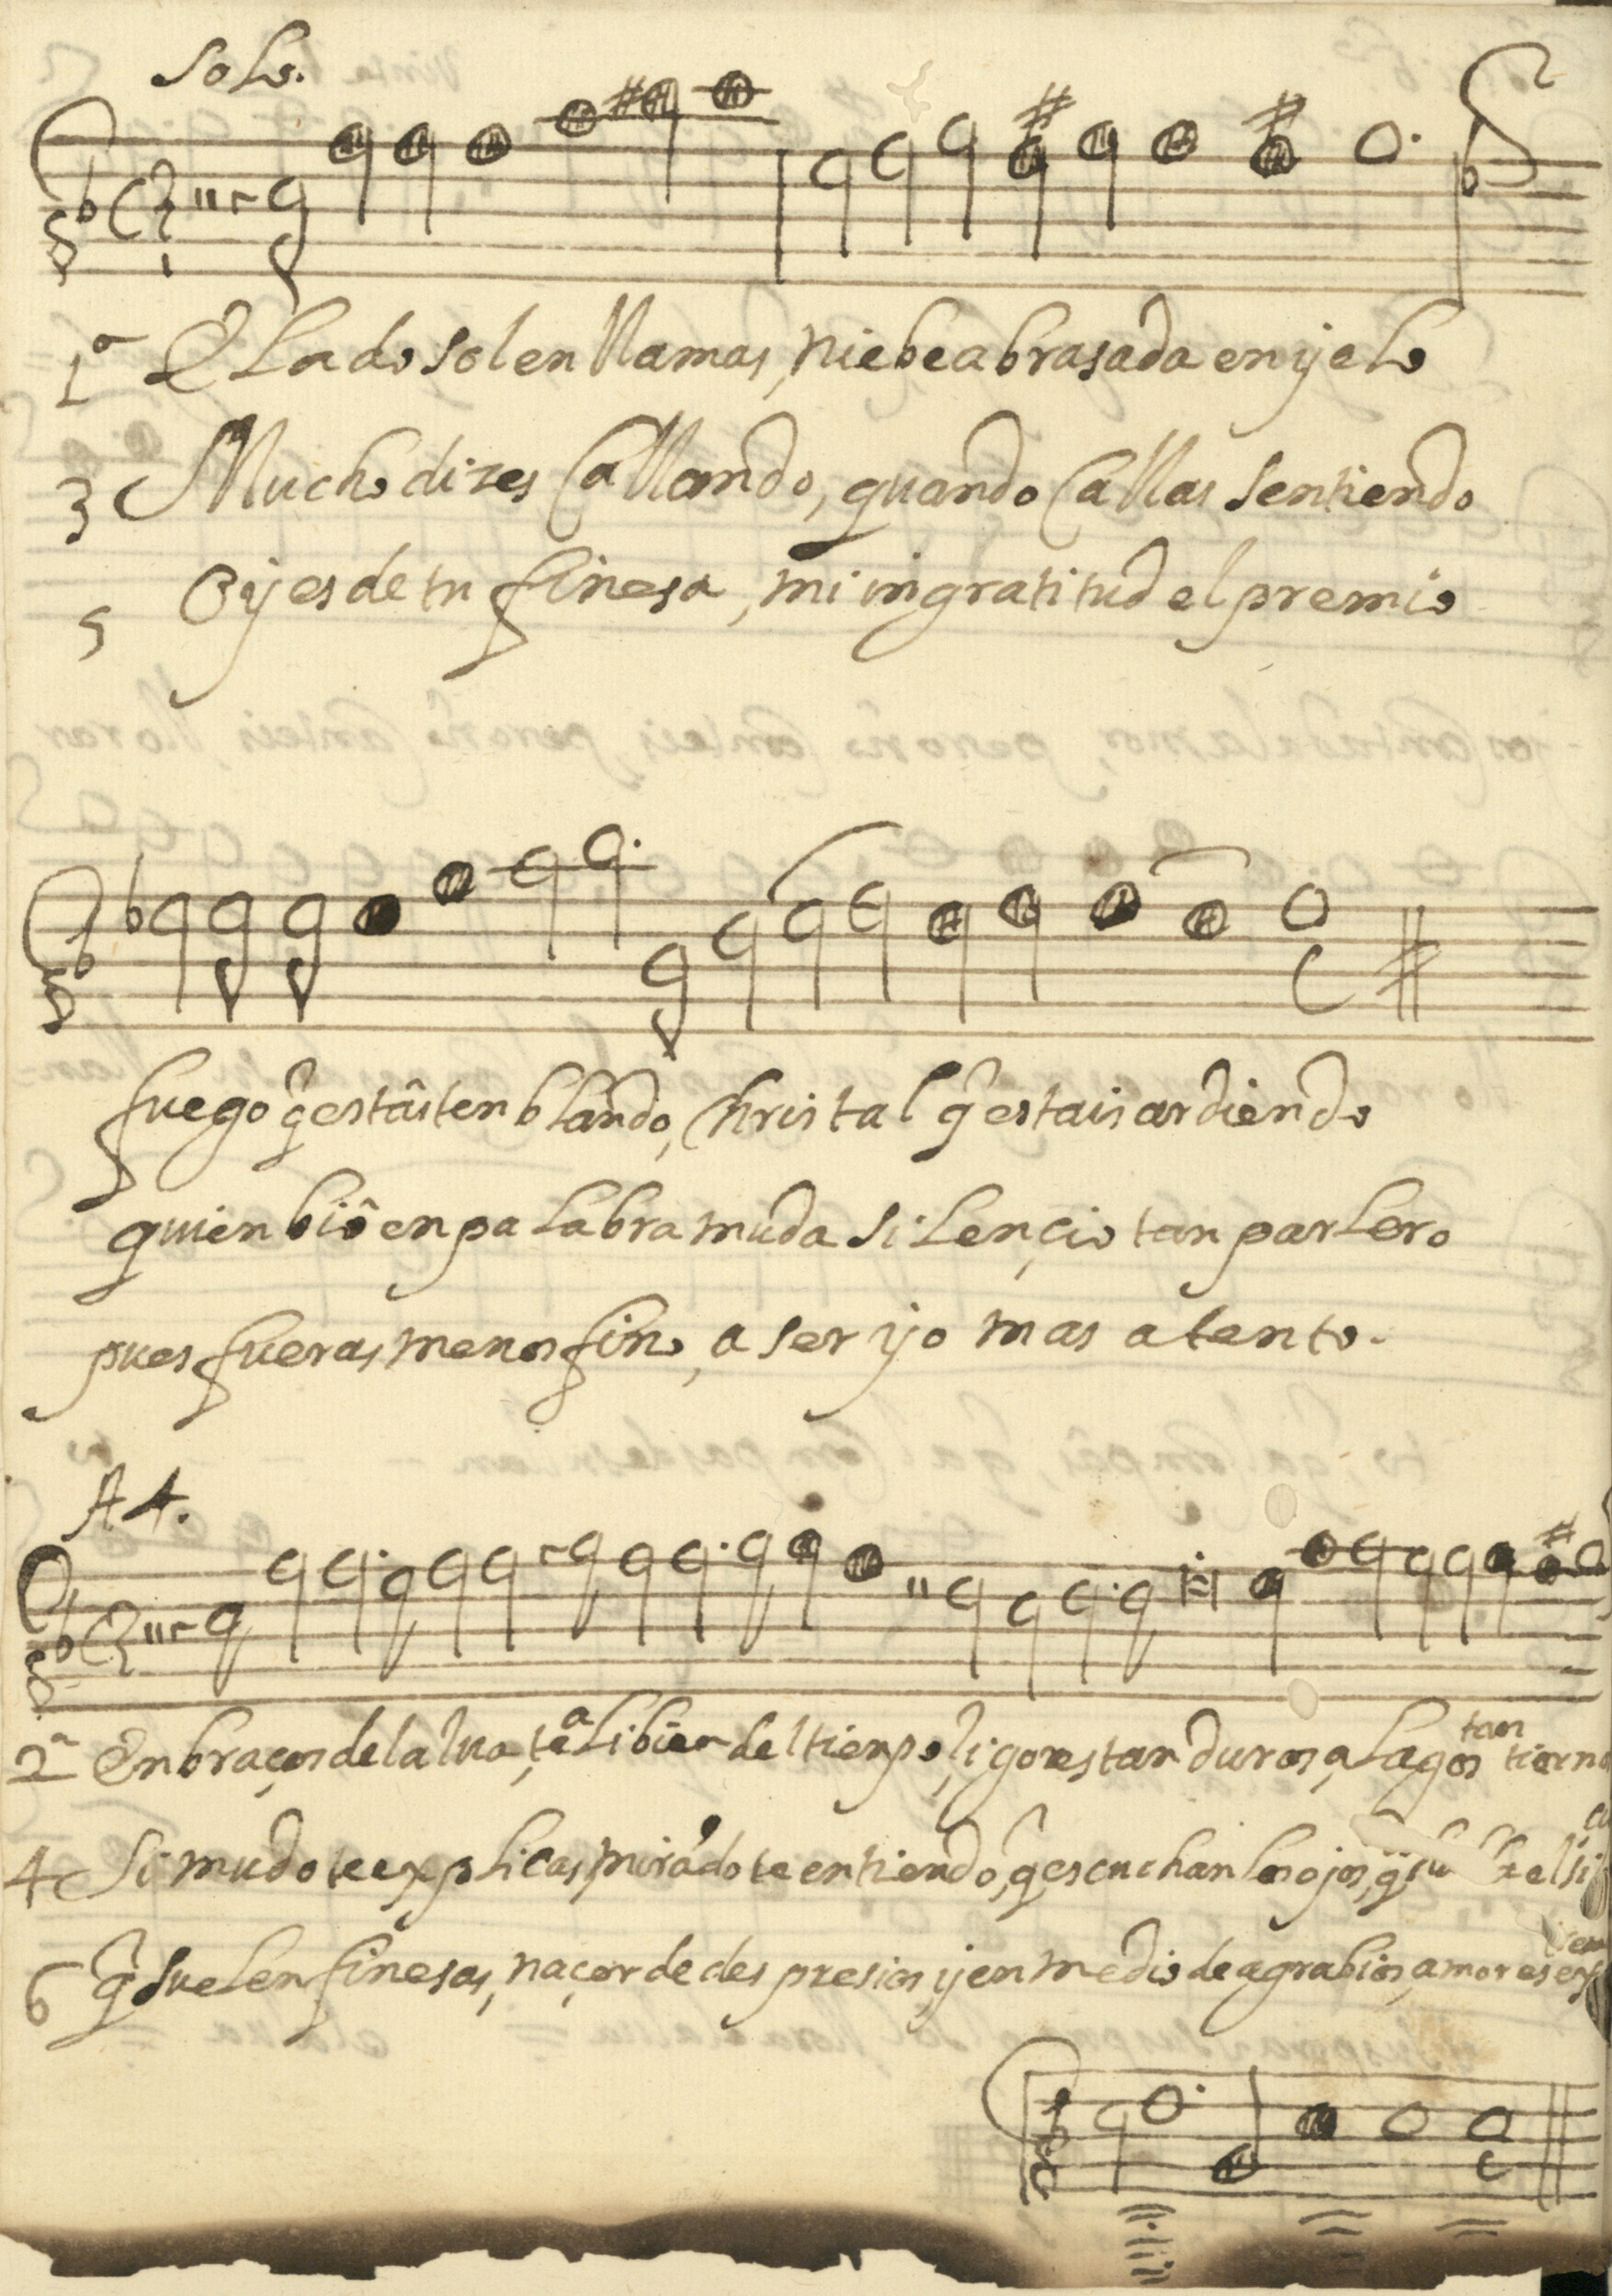 Solo.
1ª Elado sol en llamas, niebe abrasada en yelo
3 Mucho dizes Callando, quando Callas sentiendo
5 Oy es de tu finesa, mi ingratitud el premio
fuego q̃ estâs tenblando, Christal q̃ estais ardiendo
quien biô en palabra muda silençio tan parlero
pues fueras menos fino, a ser yo mas atento.
A 4.
2ª En braços de la lua, del tienpo, ligores tan duros, alagos tan tierno
4 Si mudo te explicas, mirãdo te entiendo, q̃ escuchan los ojos, el si
6 q̃ suelen finesas, naçer de despresios, y en medio de agrabios, amores